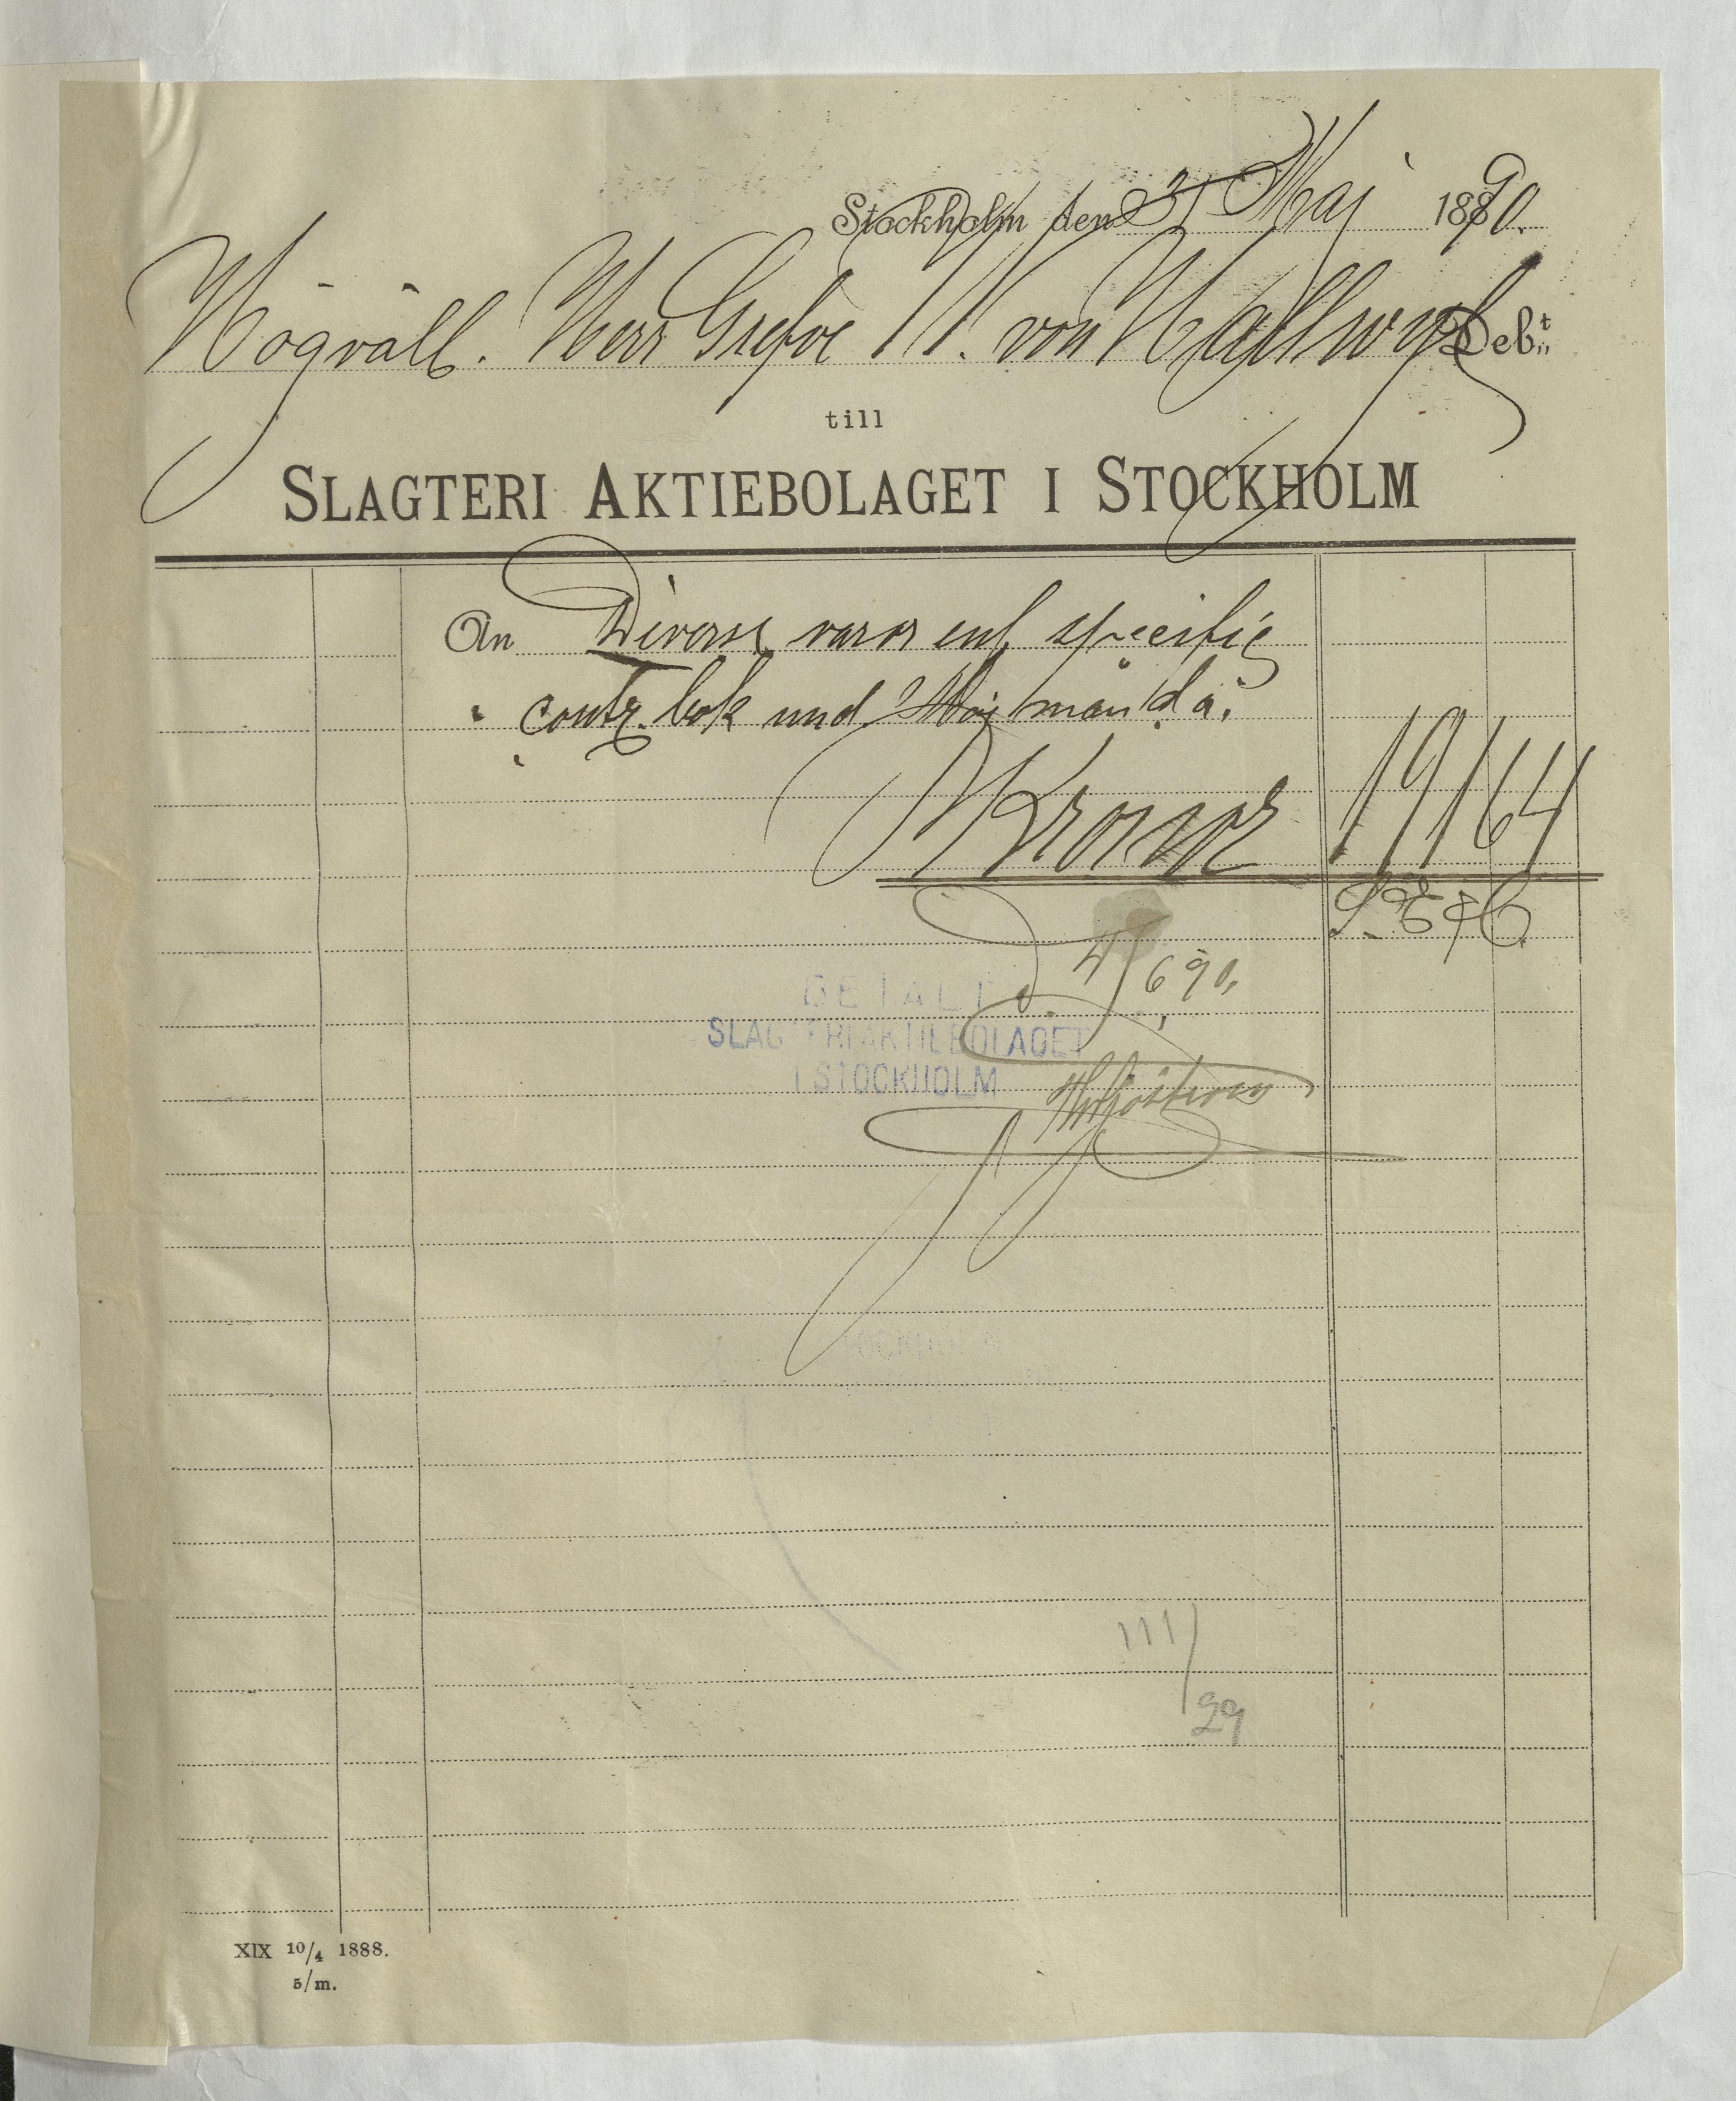 Stockholm den 31 Maj 1890.
Högvälb. Herr Grefve W. von Hallwyl Deb:t
till
SLAGTERI AKTIEBOLAGET I STOCKHOLM
An Diverse varor enl. specific
" contr. bok und Maj månad å.
Kronor 191 64
S. E. & O.
d. 4/6 90.
BETALT
SLAGTERIAKTIEBOLAGET
I STOCKHOLM
111/29
XIX 10/4 1888.
5/m.